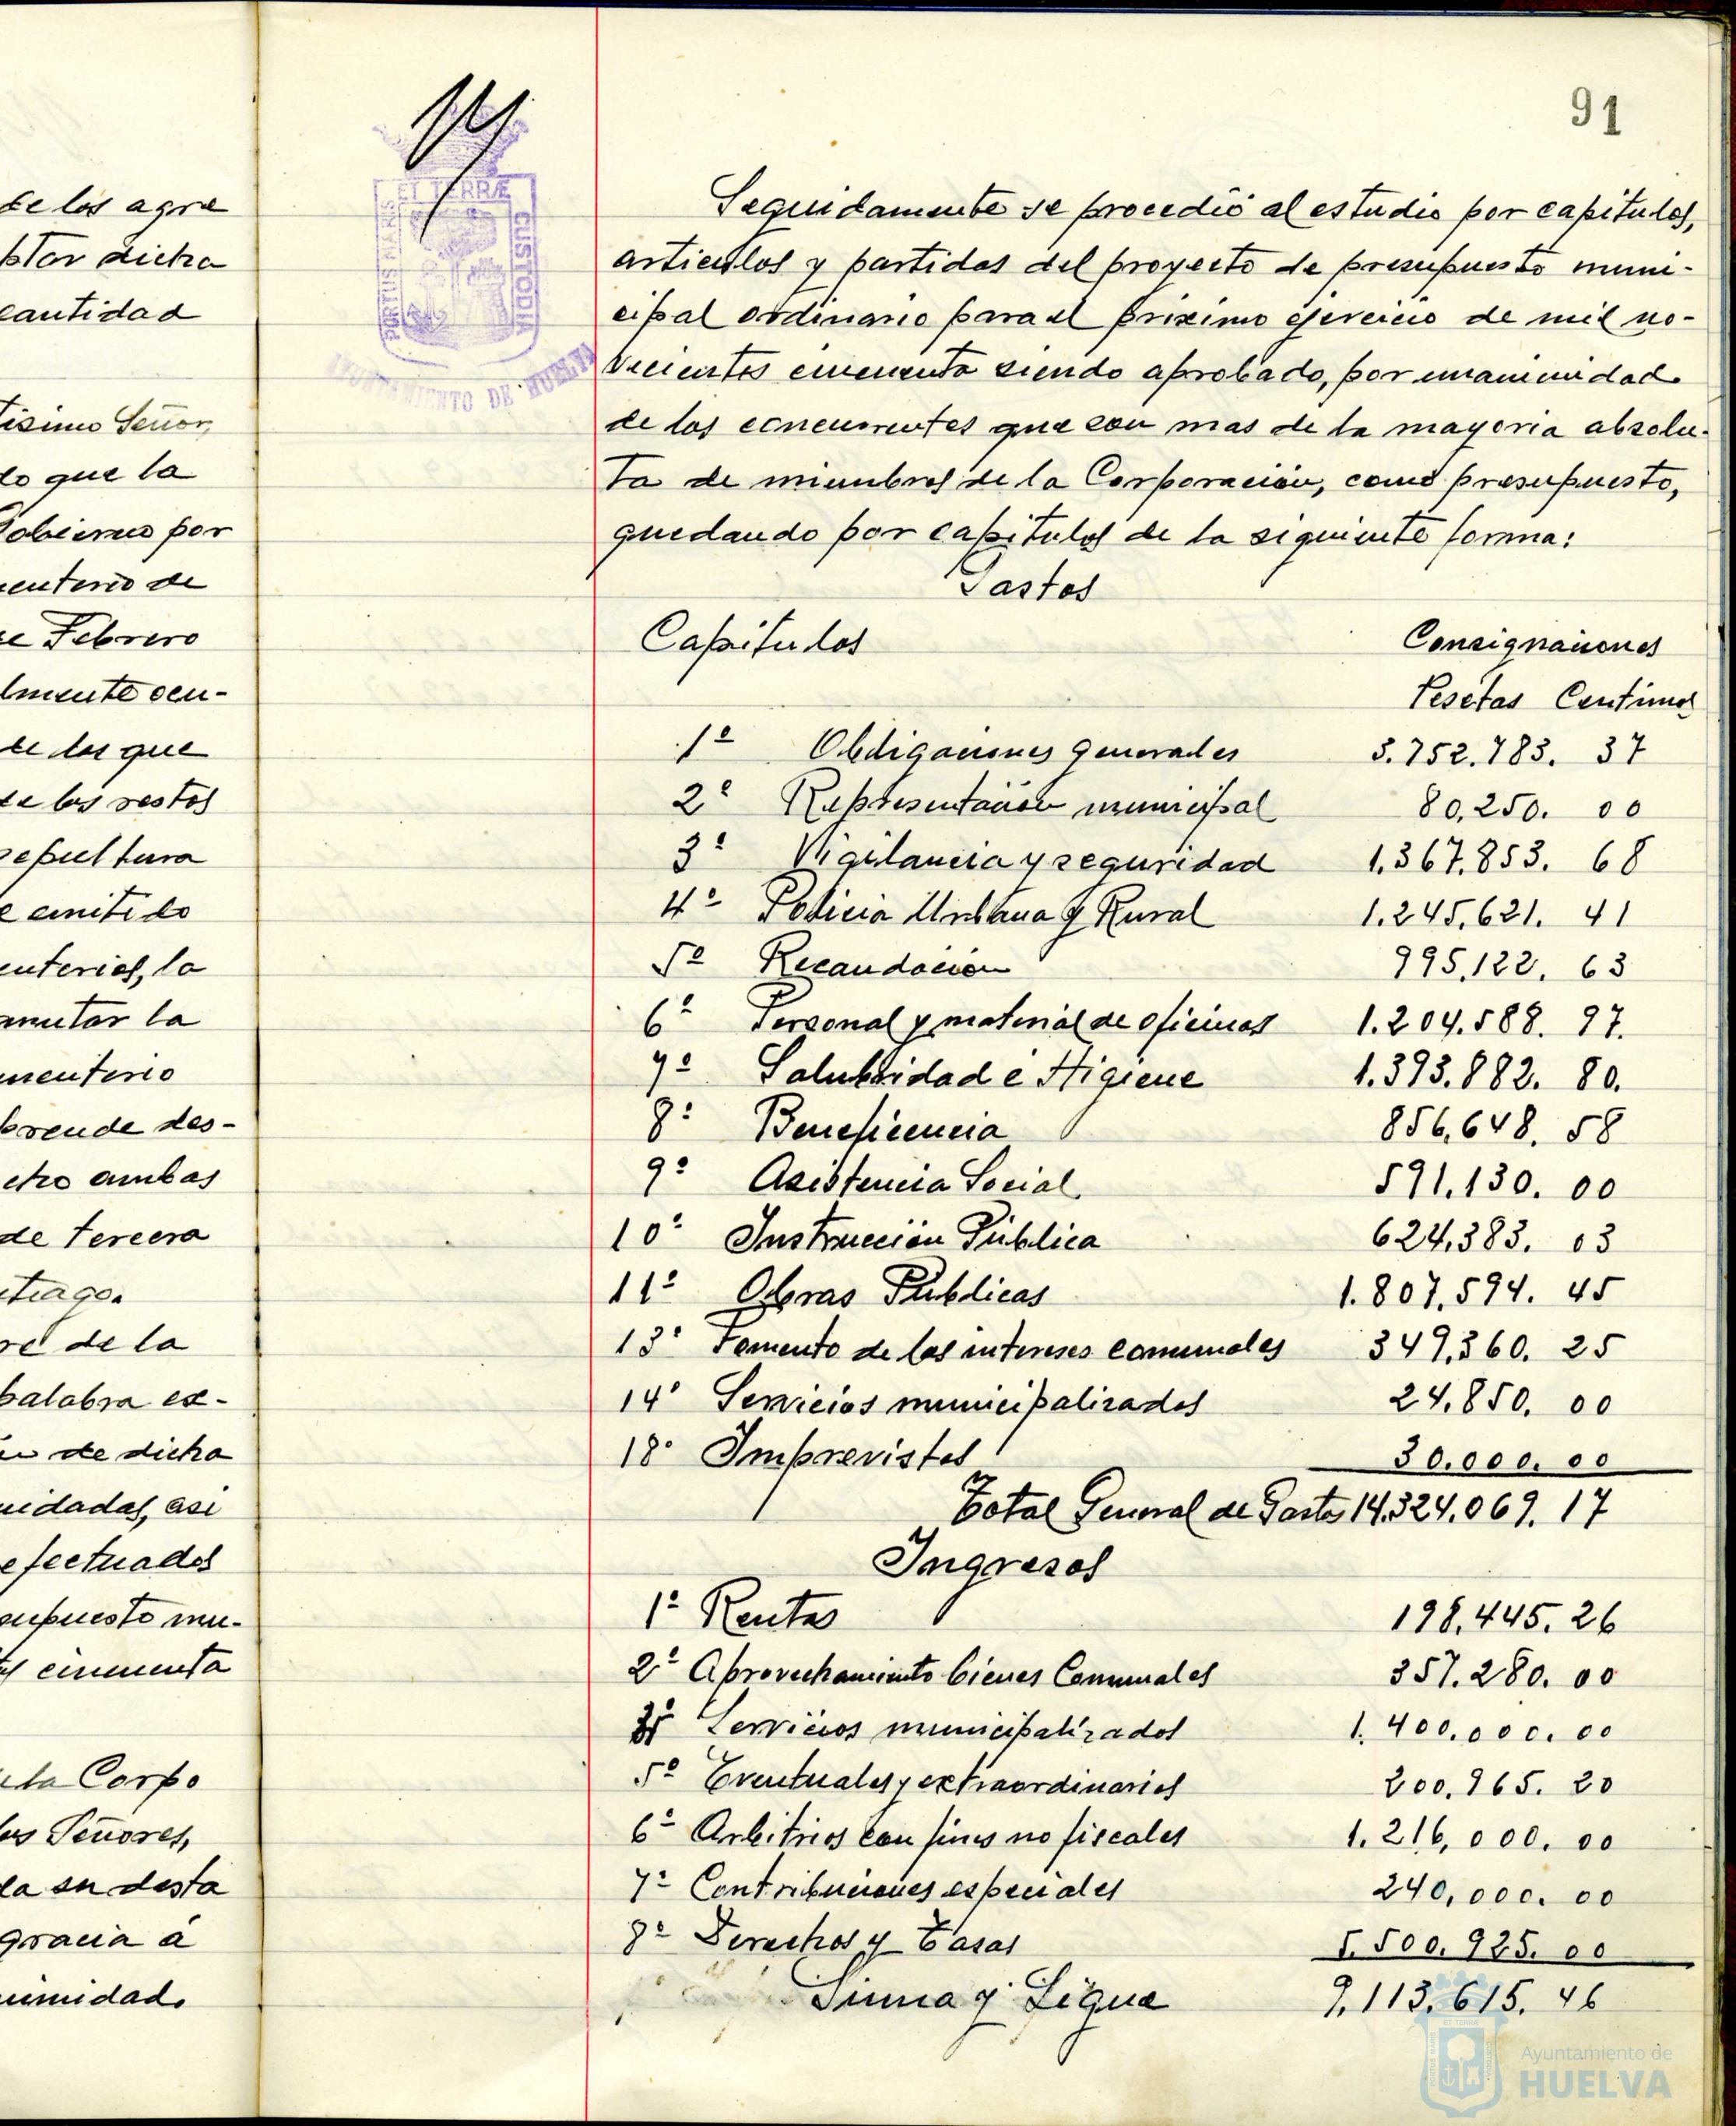 de los agra
ptar dicha
cantidad
tisimo Señor,
lo que la
Gobierno por
menterio de
de Febrero
lmente ocu-
de los que
de los restos
sepultura
e emitido
enterios, la
mutar la
menterio
prende des-
cho ambas
de tercera
itiago.
re de la
palabra ex-
ón de dicha
uidadas, asi
efectuados
supuesto mu-
os cincuenta
la Corpo
los Señores,
la su desta
gracia á
nimidad.
91
ET TERRÆ
CUSTODIA
PORTUS MARIS
AYUNTAMIENTO DE HUELVA
Seguidamente se procedió al estudio por capitulos,
articulos y partidas del proyecto de presupuesto muni-
cipal ordinario para el próximo ejercicio de mil no-
vecientos cincuenta siendo aprobado, por unanimidad
de los concurrentes que son mas de la mayoria absolu-
ta de miembros de la Corporación, como presupuesto,
quedando por capitulos de la siguiente forma:
Gastos
Capitulos Consignaciones
Pesetas Centimos
1º Obligaciones generales 3.752.783. 37
2º Representación municipal 80.250. 00
3º Vigilancia y seguridad 1.367.853. 68
4º Policia Urbana y Rural 1.245.621. 41
5º Recaudacion 995.122. 63
6º Personal y material de oficinas 1.204.588. 97.
7º Salubridad e Higiene 1.393.882. 80.
8º Beneficencia 856.648. 58
9º Asistencia Social. 591.130. 00
10º Instrucción Pública 624.383. 03
11º Obras Publicas 1.807.594. 45
13º Fomento de los intereses comunales 349.360. 25
14º Servicios municipalizados 24.850. 00
18º Imprevistos 30.000. 00
Total General de Gastos 14.324.069. 17
Ingresos
1º Rentas 198.445. 26
2º Aprovechamiento bienes Comunales 357.280. 00
Servicios municipalizados 1.400.000. 00
5º Eventuales y extraordinarios 200.965. 20
6º Arbitrios con fines no fiscales 1.216.000. 00
7º Contribuciones especiales 240.000. 00
8º Derechos y Tasas 5.500.925. 00
Suma y Sigue 9.113.615. 46
Ayuntamiento de
HUELVA